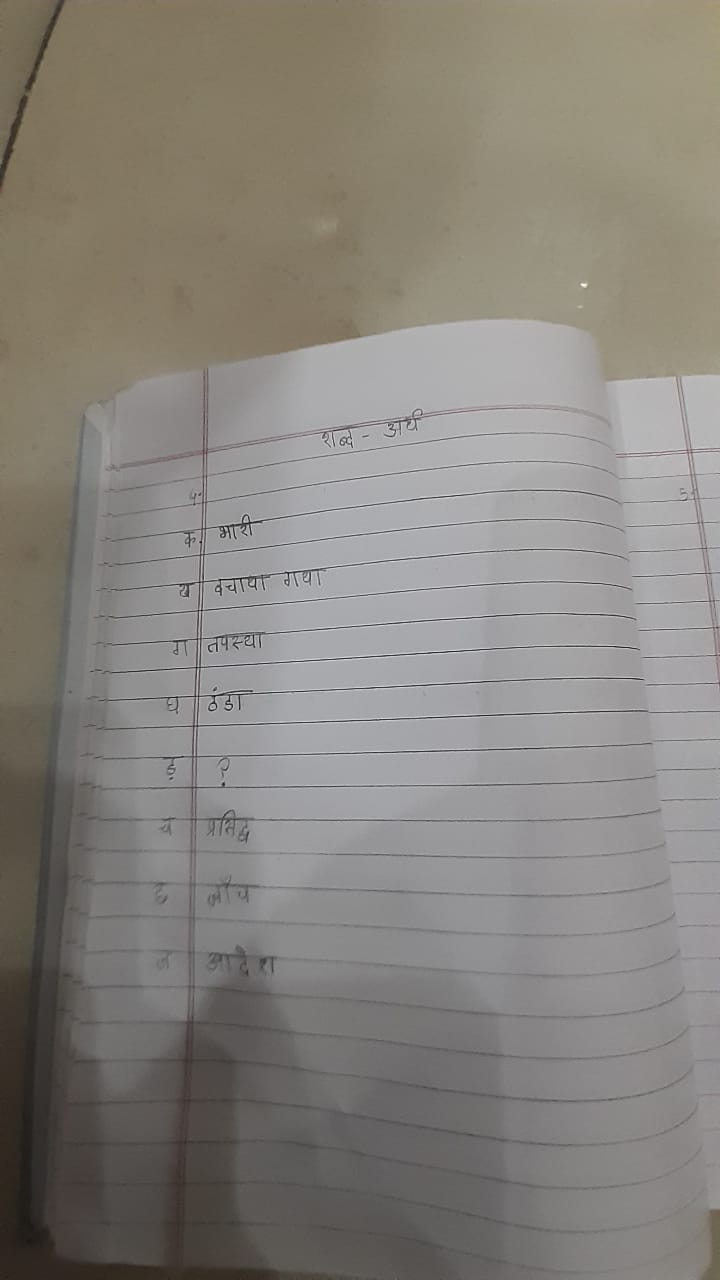 शब्द - अर्थ
4.
5.
क. भारी
ख बचाया गया
ग तपस्या
घ ठंडा
ड़ ?
च प्रसिद्ध
छ जाँच
ज आदेश